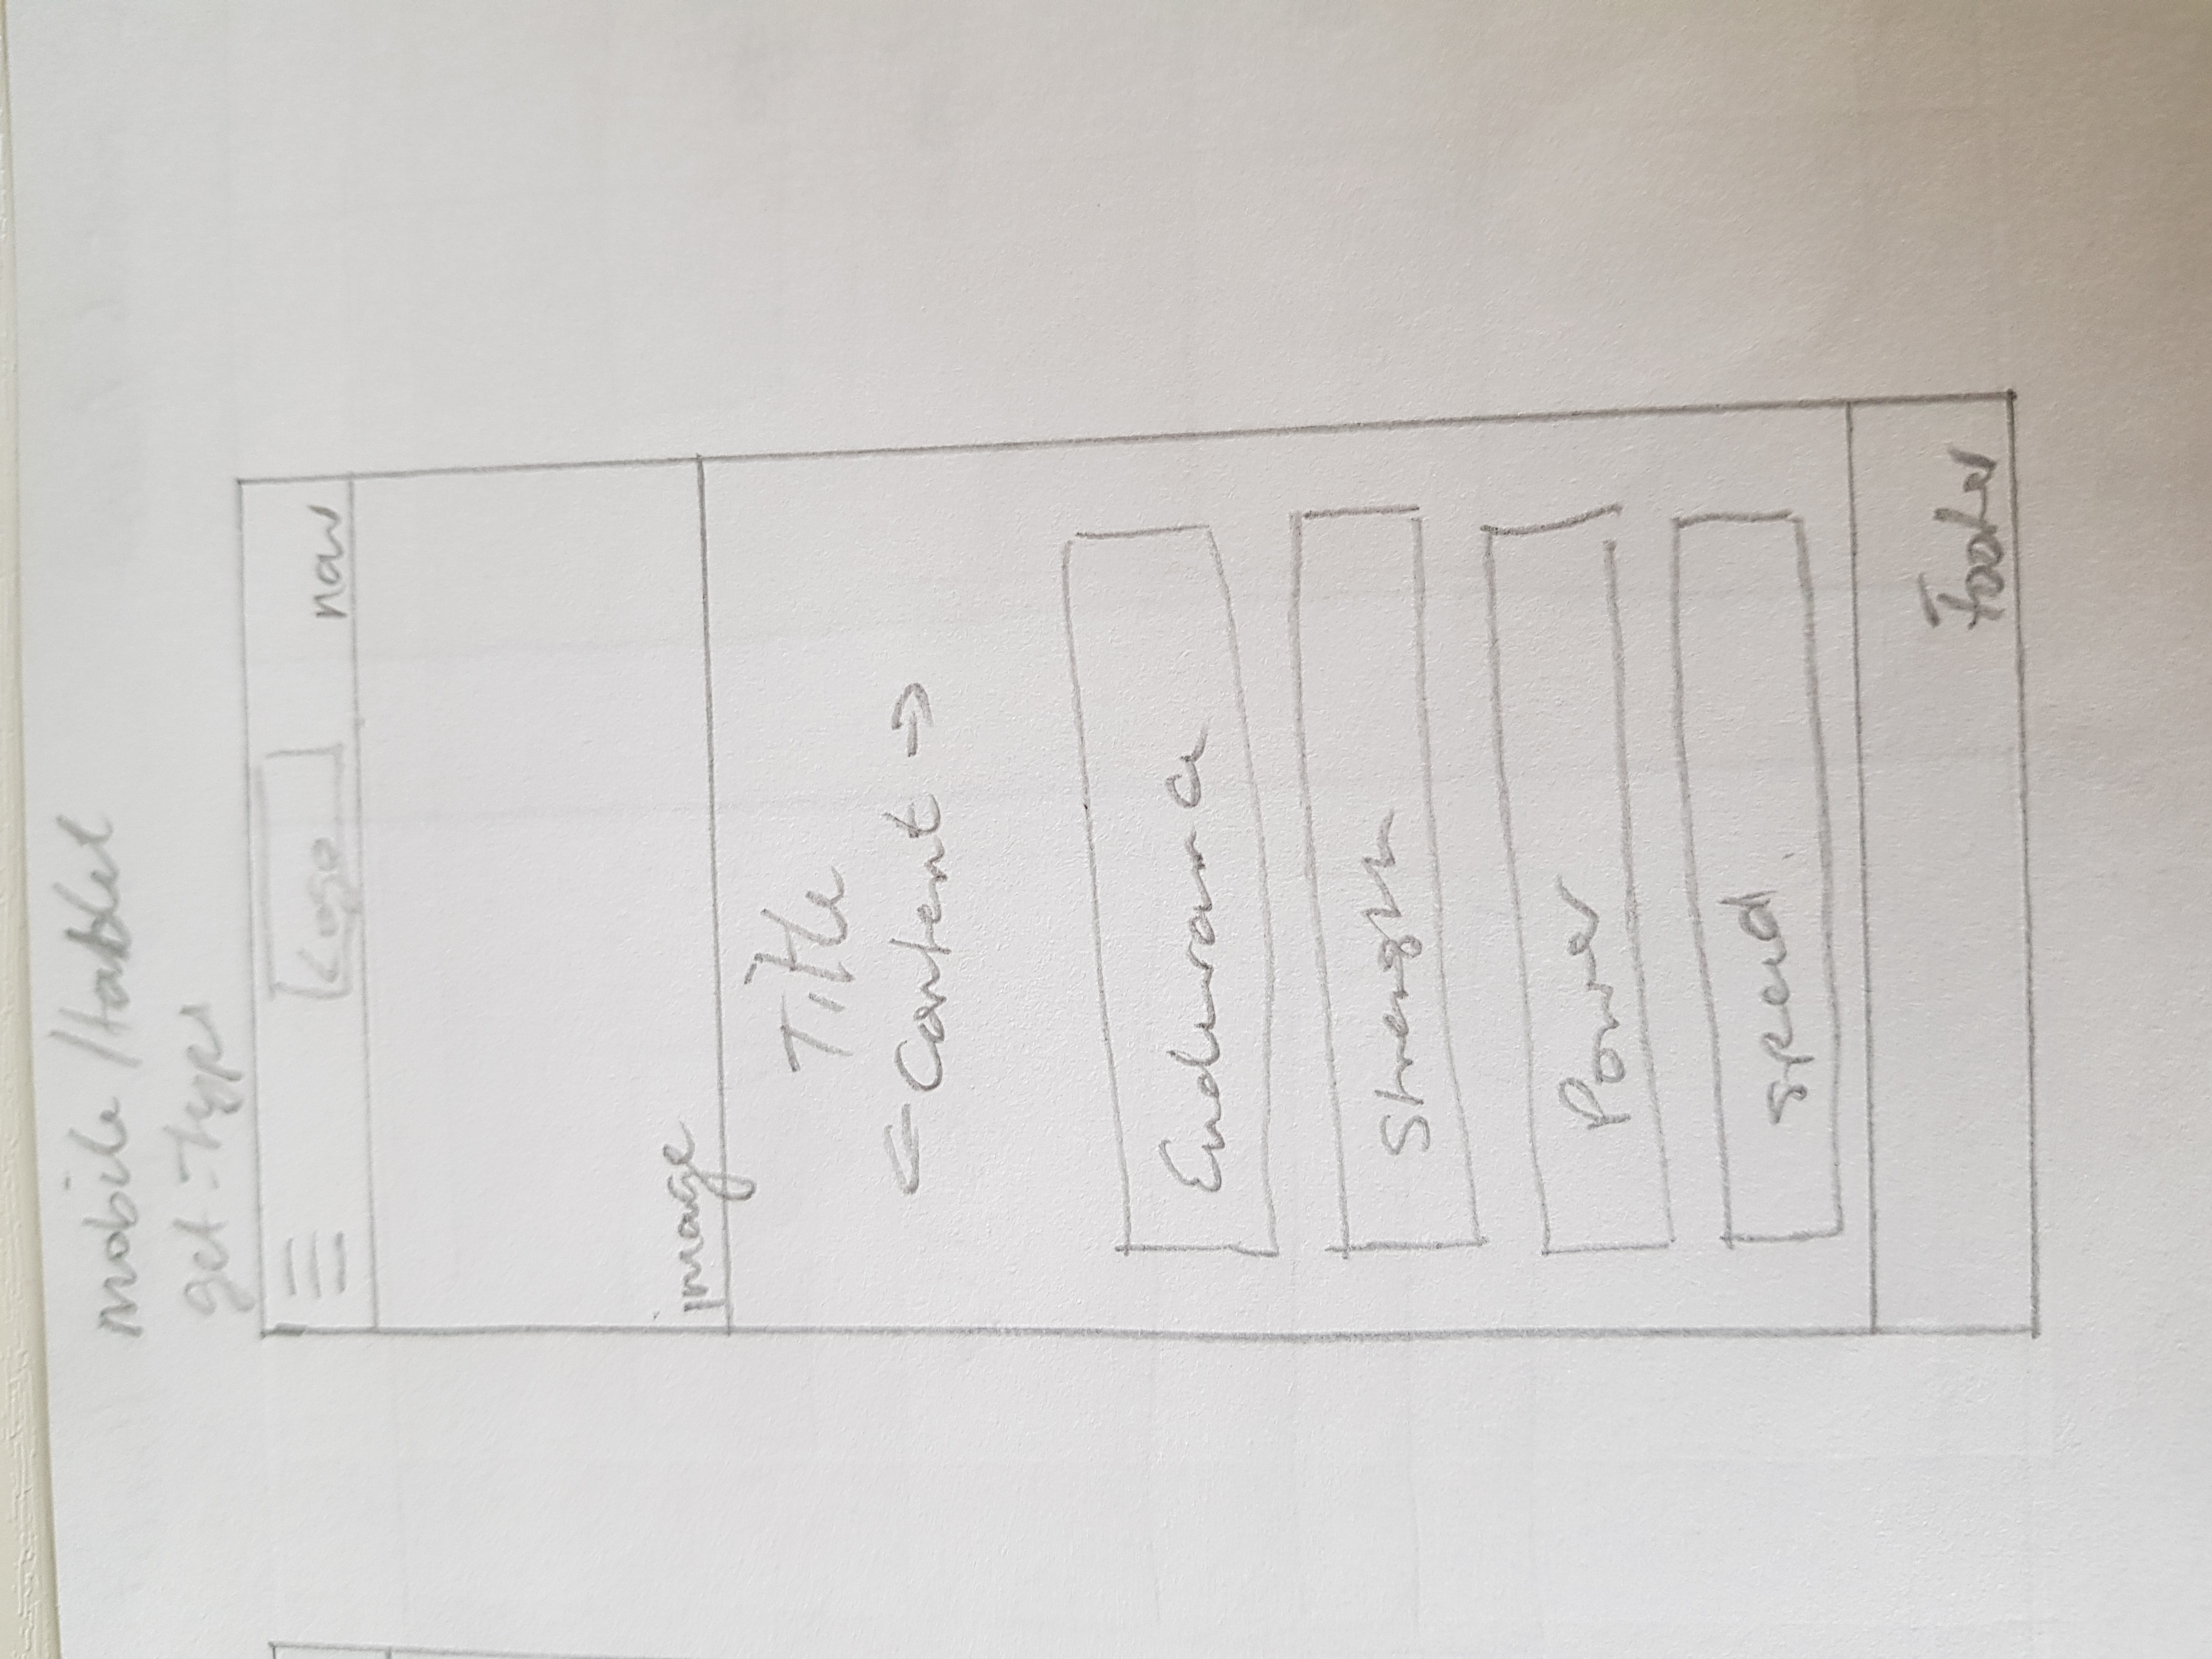 mobile / tablet
get-type
Logo nav
image
Title
← Content →
Endurance
Strength
Power
speed
Footer